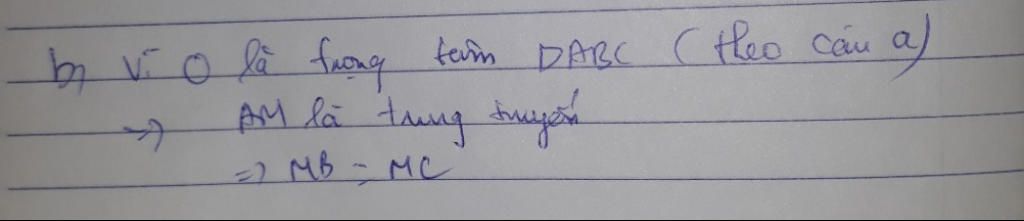 b, Vì O là trọng tâm DABC (theo câu a)
=> AM là trung tuyến
=> MB = MC